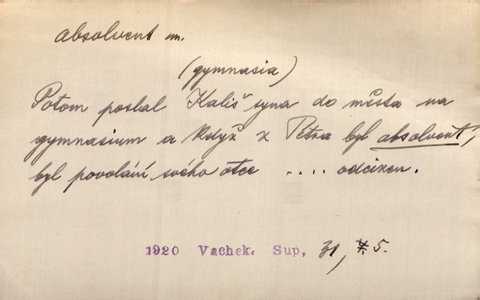 absolvent m.
(gymnasia)
Potom poslal Kališ syna do města na
gymnasium a když z Petra byl absolvent,
byl povolání svého otce .... odcizen.
1920 Vachek, Sup, 31, 5.